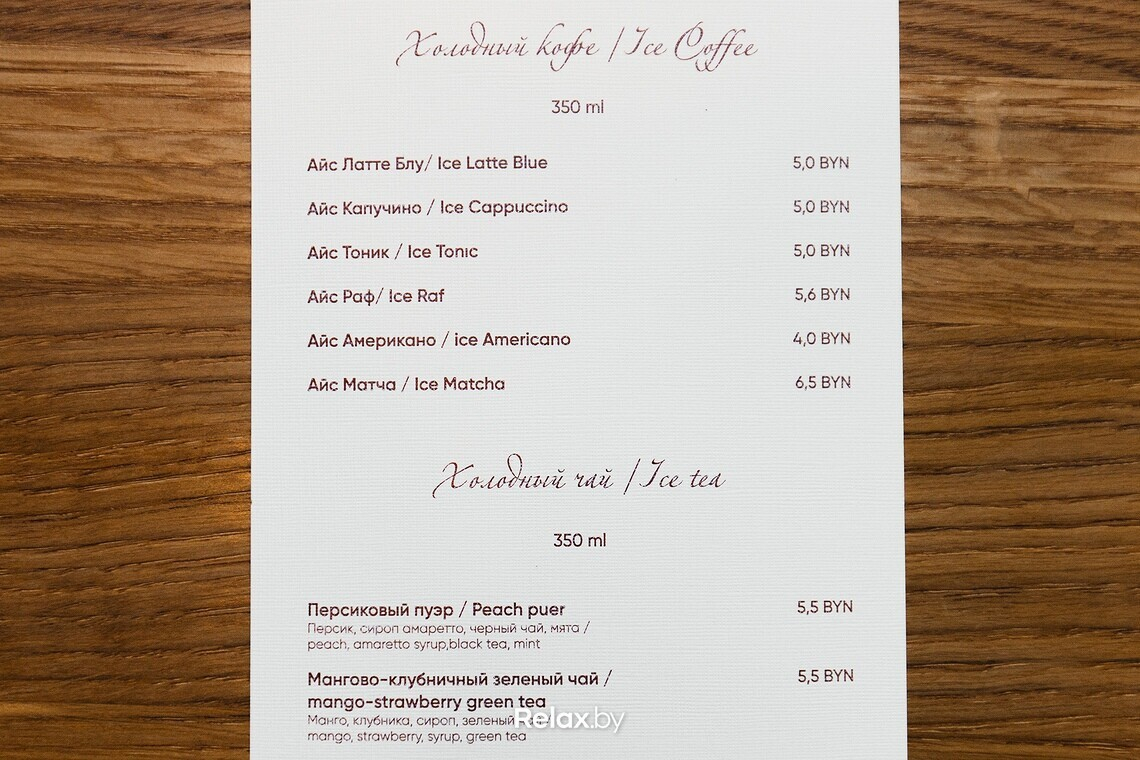 Холодный кофе / Ice Coffee
350 ml
Айс Латте Блу/ Ice Latte Blue 5,0 BYN
Айс Капучино / Ice Cappuccino 5,0 BYN
Айс Тоник / Ice Tonic 5,0 BYN
Айс Раф/ Ice Raf 5,6 BYN
Айс Американо / ice Americano 4,0 BYN
Айс Матча / Ice Matcha 6,5 BYN
Холодный чай / Ice tea
350 ml
Персиковый пуэр / Peach puer 5,5 BYN
Персик, сироп амаретто, черный чай, мята /
peach, amaretto syrup,black tea, mint
Мангово-клубничный зеленый чай / 5,5 BYN
mango-strawberry green tea
Манго, клубника, сироп, зеленый чай /
mango, strawberry, syrup, green tea
Relax.by